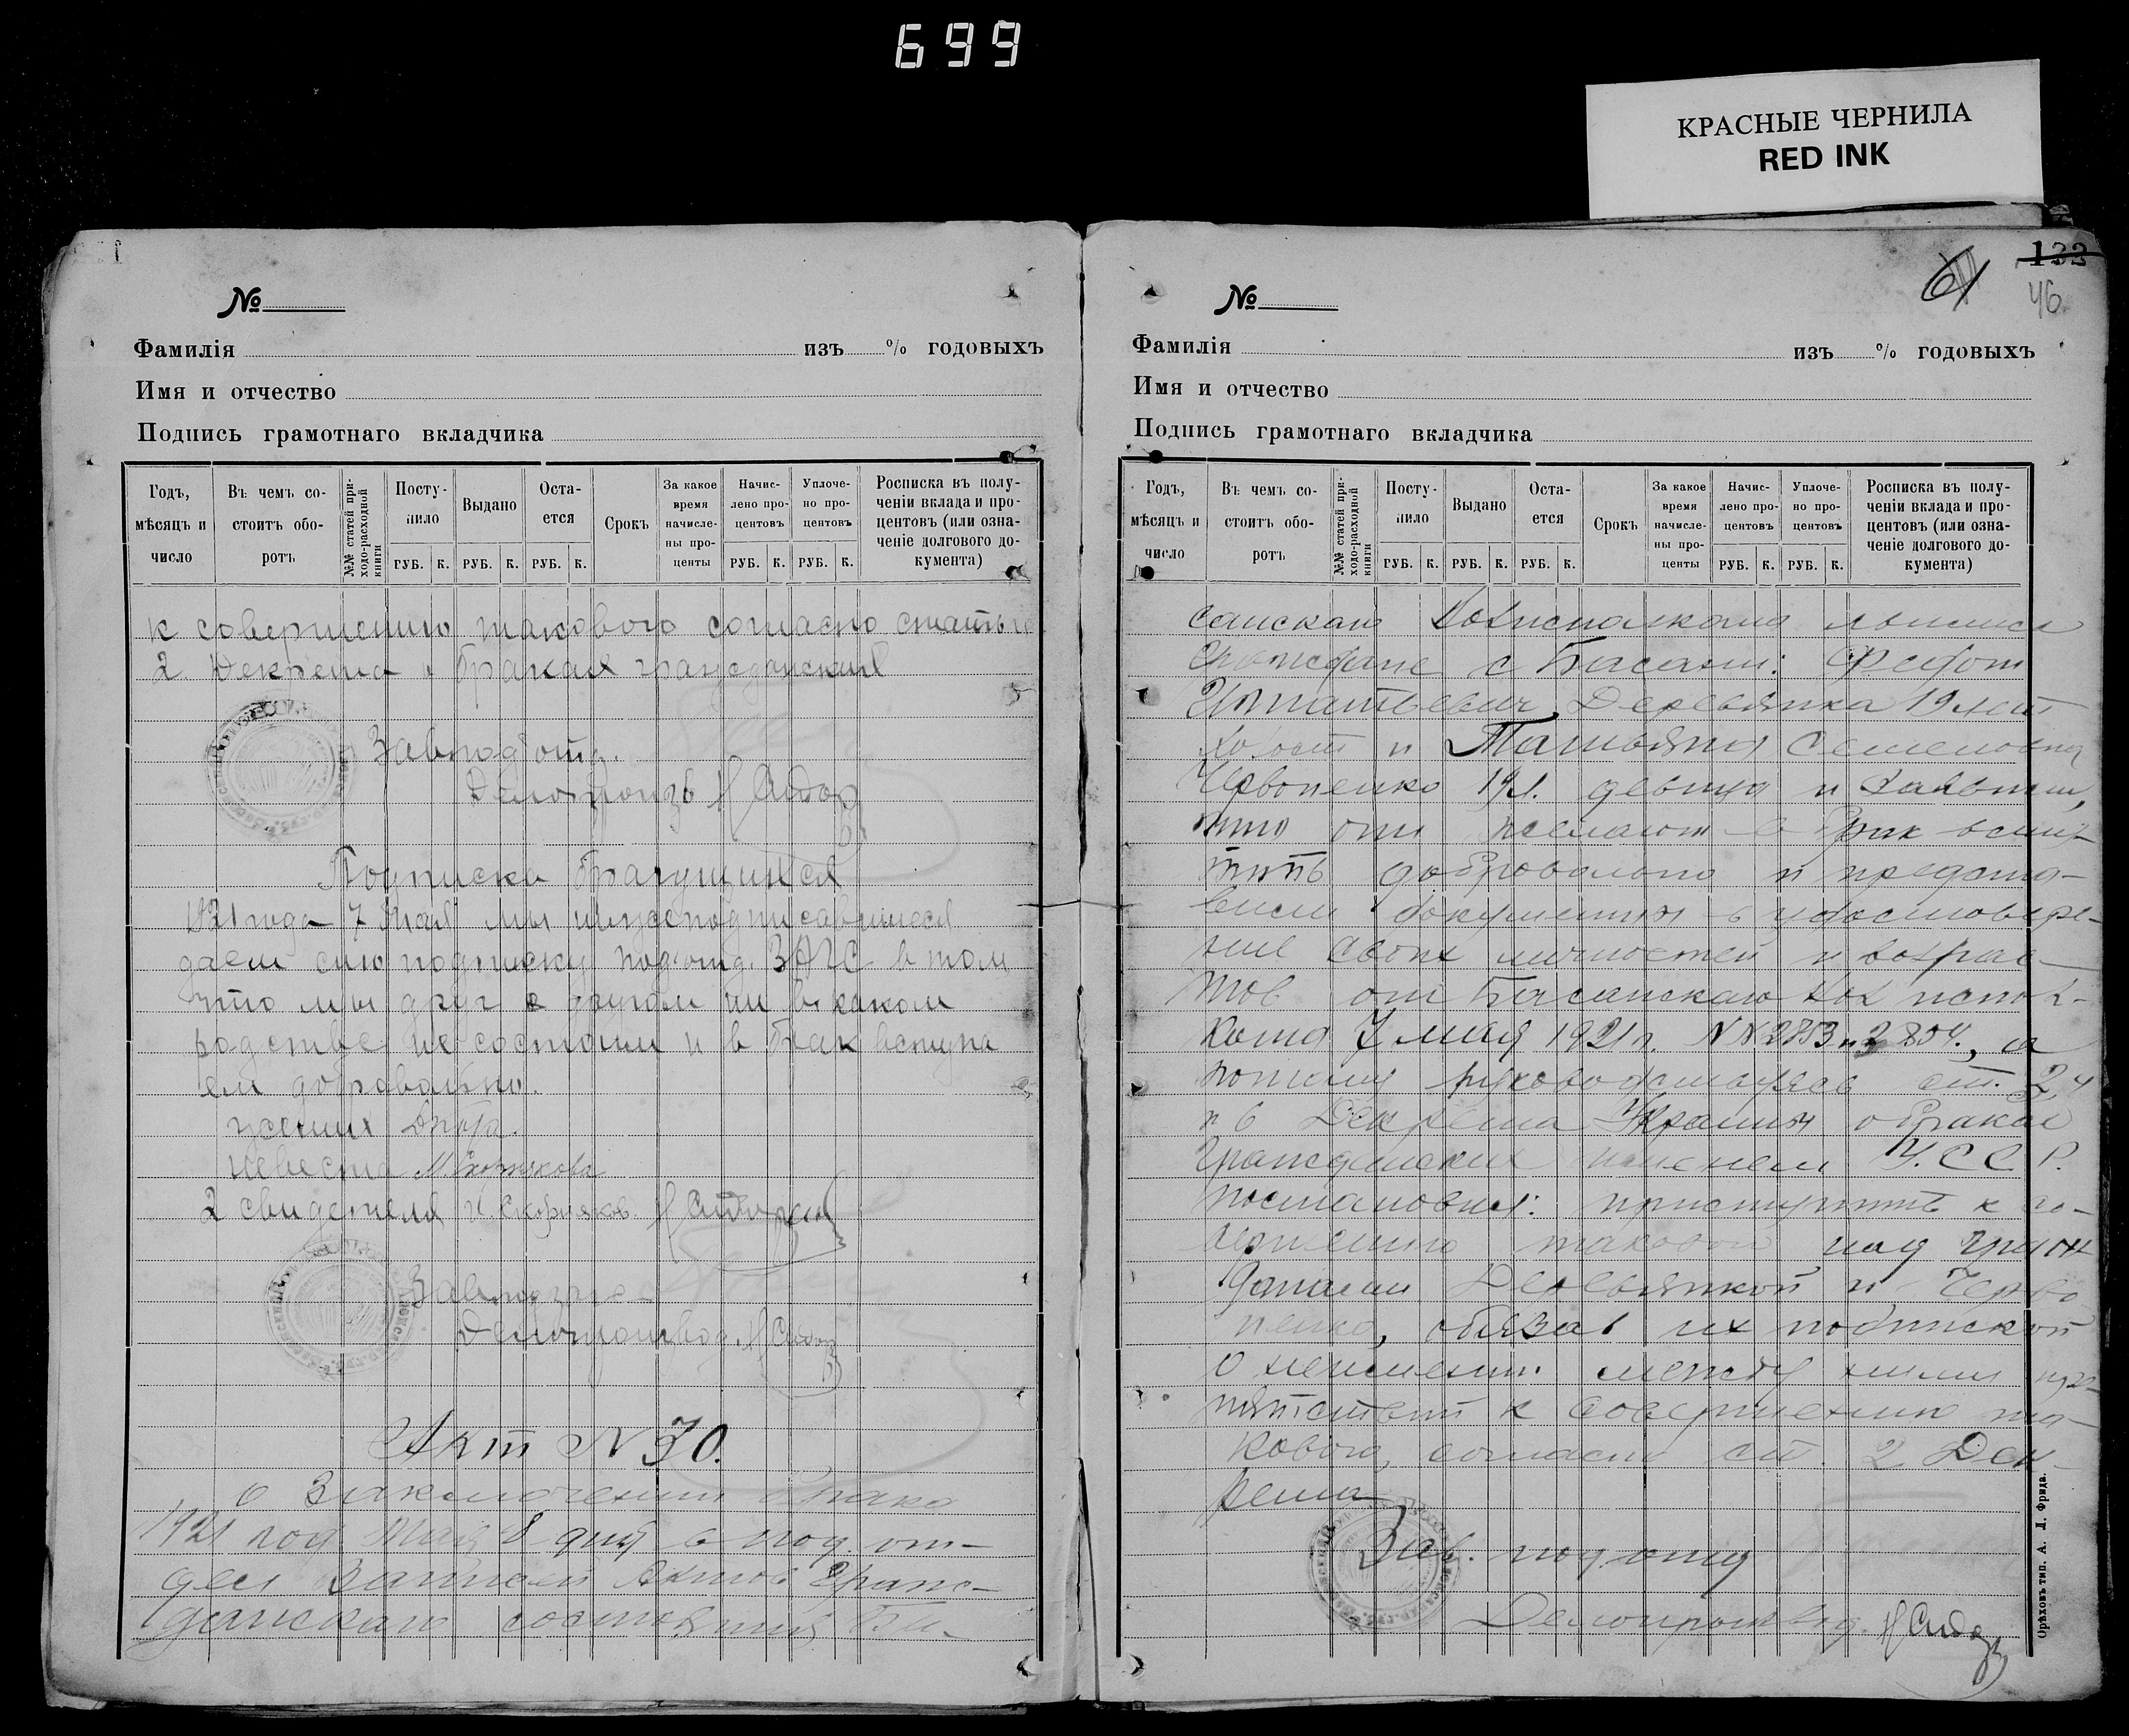 699
КРАСНЫЕ ЧЕРНИЛА
RED INK
№
Фамилія из % годовыхъ
Имя и отчество
Подпись грамотнаго вкладчика
Годъ, мѣсяцъ и число
Въ чемъ состоитъ оборотъ
№№ статей приходо-расходной книги
Поступило
Выдано
Остается
Срокъ
За какое время начислены проценты
Начислено процентовъ
Уплочено процентовъ
Росписка въ полученіи вклада и процентовъ (или означеніе долгового документа)
РУБ. К. РУБ. К. РУБ. К. РУБ. К. РУБ. К.
к совершению такового согласно статьи
2 Декрета о браках гражданских
Завподотд.
Делопроизв Н Сидор
Подписка брачущихся
1921 года 7 Мая мы нижеподписавшиеся
даем сию подписку под'отд. ЗАГС в том
что мы друг с другом ни в каком
родстве не состоим и в брак вступа
ем добровольно.
жених
невеста М. Скорнякова
2 свидетеля И. Скорняков. Н Сидор
Завподзагс
Делопроизвод. Н Сидор
Акт N 30.
о Заключении брака
1921 год Мая 8 дня в под. от-
дел Записей Актов Граж-
данского состояния Ба-
61
132
46
№
Фамилія из % годовыхъ
Имя и отчество
Подпись грамотнаго вкладчика
Годъ, мѣсяцъ и число
Въ чемъ состоитъ оборотъ
№№ статей приходо-расходной книги
Поступило
Выдано
Остается
Срокъ
За какое время начислены проценты
Начислено процентовъ
Уплочено процентовъ
Росписка въ полученіи вклада и процентовъ (или означеніе долгового документа)
РУБ. К. РУБ. К. РУБ. К. РУБ. К. РУБ. К.
санского Волисполкома явились
граждане с Басани: Федот
Игнатьевич Деревянка 19 лет
холост и Татьяна Семеновна
Червоненко 19 л. девица и заявили,
что они желают в брак всту-
пить добровольно и предста-
вили документы в удостовере-
ние своих личностей и возрас-
тов от Басанского Вол испол-
кома 7 мая 1921 г. NN 2853 и 2854., а
потому руководствуясь ст. 2, 4
и 6 Декрета Украины о браках
Гражданских именем У.С.С.Р.
постановил: приступить к со-
вершению такового над граж-
данами Деревянкой и Черво
ненко, обязав их подпиской
о неимении между ними пре-
пятствий к совершению та-
кового, согласно ст. 2 Дек-
рета
Зав. под отд
Делопроизвод. Н Сидор
Орѣховъ тип. А. Л. Фрида.